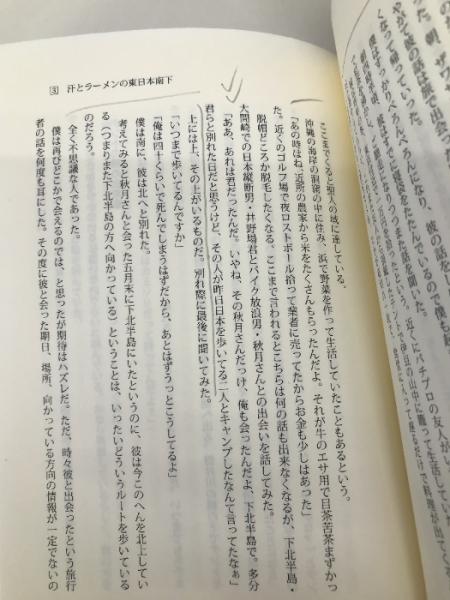 ③ 汗とラーメンの東日本南下
ここまでくると聖人の域に達している。
沖縄の海岸の洞窟の中に住み、浜で野菜を作って生活していたこともあるという。
「あの時はね、近所の農家から米をたくさんもらったんだよ。それが牛のエサ用で目茶苦茶まずかっ
た。近くのゴルフ場で夜ロストボール拾って業者に売ってたからお金も少しはあった」
脱帽どころか脱毛したくなる。ここまで言われるとこちらは何の話も出来なくなるが、下北半島・
大間崎での日本縦断男・井野場君とバイク放浪男・秋月さんとの出会いを話してみた。
「ああ、あれは君だったんだ。いやね、その秋月さんだっけ、俺も会ったんだよ、下北半島で。多分
君らと別れた日だと思うけど、その人が昨日日本を歩いてる二人とキャンプしたなんて言ってたなぁ」
上には上、その上がいるものだ。別れ際に最後に聞いてみた。
「いつまで歩いてるんですか」
「俺は四十くらいで死んでしまうはずだから、あとはずうっとこうしてるよ」
僕は南に、彼は北へと別れた。
考えてみると秋月さんと会った五月末に下北半島にいたというのに、彼は今このへんを北上してい
る（つまりまた下北半島の方へ向かっている）ということは、いったいどういうルートを歩いている
のだろう。
全く不思議な人であった。
僕は再びどこかで会えるのでは、と思ったが期待はハズレだ。ただ、時々彼と出会ったという旅行
者の話を何度も耳にした。その度に彼と会った期日、場所、向かっている方向の情報が一定でないの